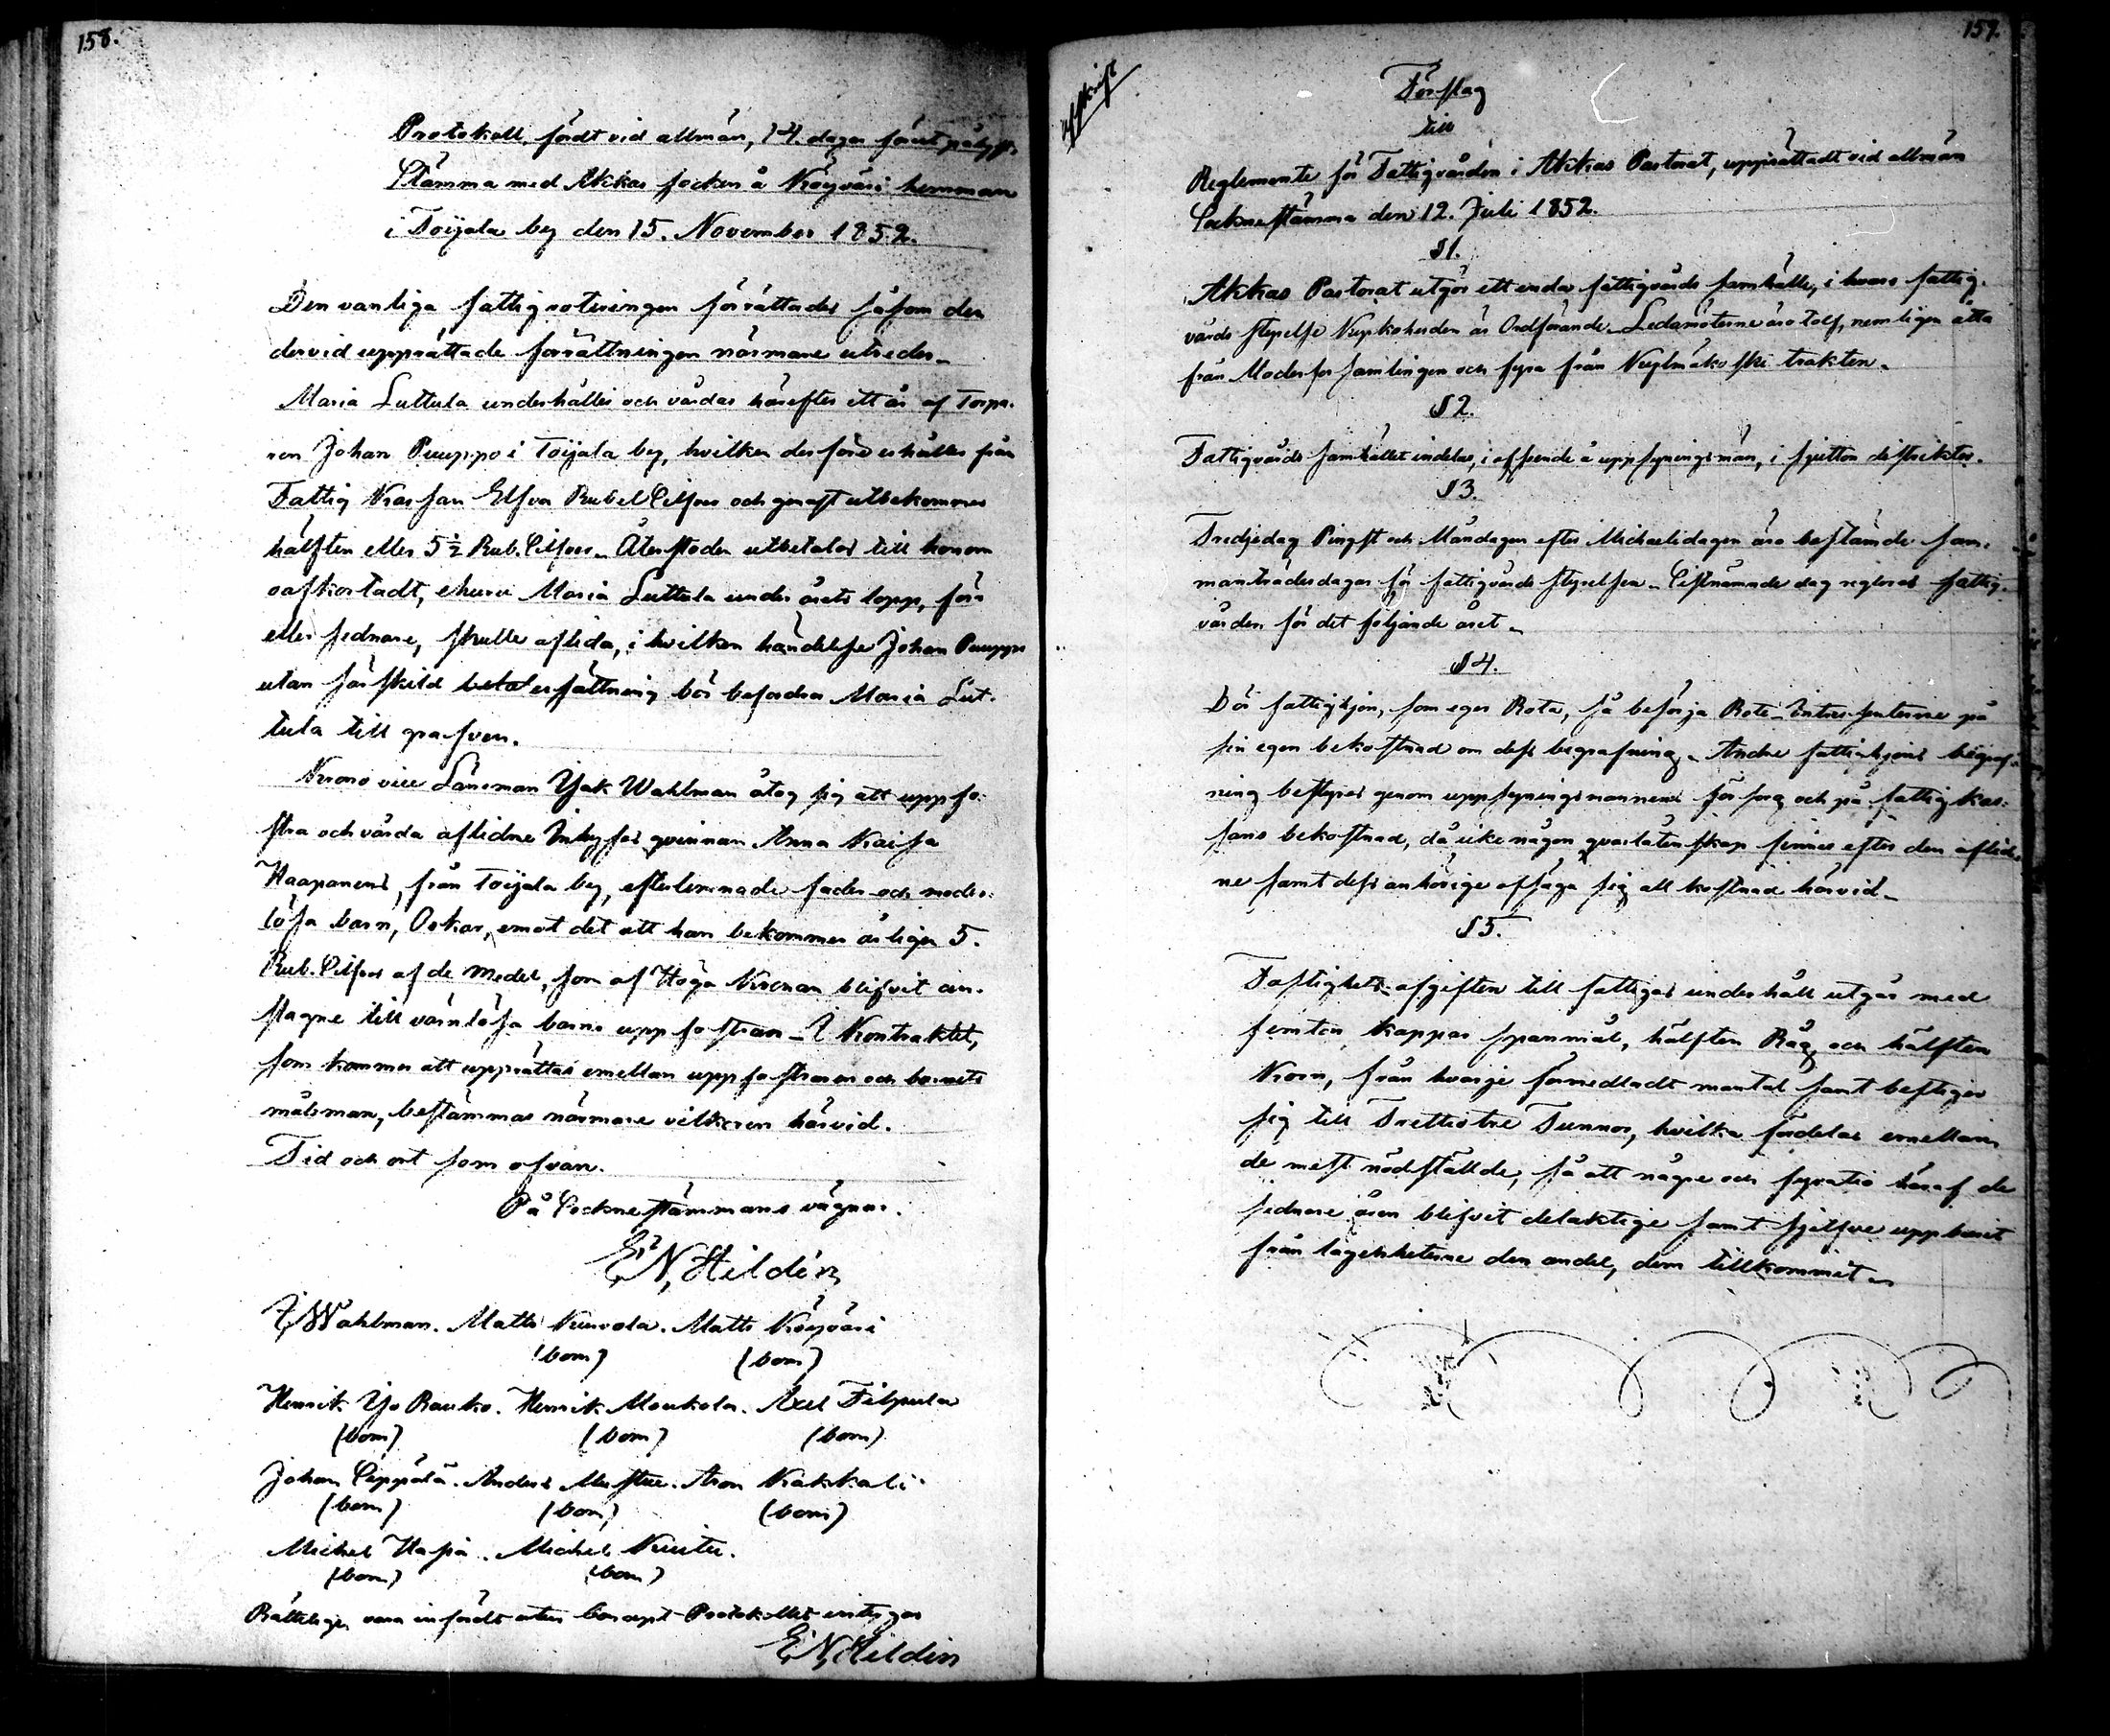 158.
Protokoll, fördt vid allmän, 14. dagar förut pålyst,
Stämma med Akkas socken å Köyväri hemman
i Toijala by den 15. November 1852.
Den vanliga fattigroteringen förrättades såsom den
dervid upprättade förrättningen närmare utreder.
Maria Luttula underhålles och vårdas härefter ett år af Torpa-
ren Johan Puuppo i Toijala by, hvilken derföre erhåller från
Fattig Kassan Elfva Rubel Silfver och genast utbekommer
hälften eller 5½ Rub. Silfver. Återstoden utbetalas till honom
oafkortadt, ehuru Maria Luttula under årets lopp, förr
eller sednare, skulle aflida, i hvilken händelse Johan Puuppo
utan särskild ersättning bör befordra Maria Lut-
tula till grafven.
Krono vice Länsman Isak Wahlman åtog sig att uppfo-
stra och vårda aflidne Inhyses qvinnan Anna Kaisa
Haapanens, från Toijala by, efterlemnade fader- och moder-
lösa barn, Oskar, emot det att han bekommer årligen 5.
Rub. Silfver af de medel, som af Höga Kronan blifvit an-
slagne till värnlösa barns uppfostran. I Kontraktet,
som kommer att upprättas emellan uppfostraren och barnets
målsman, bestämmas närmare vilkoren härvid.
Tid och ort som ofvan.
På Socknestämmans vägnar.
E. N. Hildén
I. Wahlman. Matts Kurvola. Matts Köyväri
(bom) (bom)
Henrik Yso Rauko. Henrik Monkola. Axel Filpula
(bom) (bom) (bom)
Johan Seppälä. Anders Mestue. Aron Kakkali
(bom) (bom) (bom)
Michel Hapa. Michel Knuutu.
(bom) (bom)
Rätteligen vara infördt utur Concept-Protokollet intygar
E. N. Hildén
159.
Afskrift
Förslag
till
Reglemente för Fattigvården i Akkas Pastorat, upprättadt vid allmän
Socknestämma den 12. Juli 1852.
§1.
Akkas Pastorat utgör ett enda fattigvårds samhälle, i hvars fattig-
vårds styrelse Kyrkoherden är Ordförande. Ledamöterne äro tolf, nemligen åtta
från Moderförsamlingen och fyra från Kylmäkoski trakten.
§2.
Fattigvårds samhället indelas, i afseende å uppsyningsmän, i sjutton distrikter.
§3.
Tredjedag Pingst och Måndagen efter Michaelidagen äro bestämde sam-
manträdesdagar för fattigvårds styrelsen. Sistnämnde dag regleras fattig-
vården för det följande året.
§4.
Dör fattighjon, som eger Rota, så besörja Rote-Intressenterne på
sin egen bekostnad om dess begrafning. Andre fattighjons begraf-
ning bestyres genom uppsyningsmannens försorg och på fattigkas-
sans bekostnad, då icke någon qvarlåtenskap finnes efter den aflid-
ne samt dess anhörige afsäga sig all kostnad härvid.
§5.
Fastighets-afgiften till fattigas underhåll utgår med
femton kappar spanmål, hälften Råg och hälften
Korn, från hvarje förmedladt mantal samt bestiger
sig till Trettiotre Tunnor, hvilka fördelas emellan
de mest nödställde, så att någre och fyratio häraf de
sednare åren blifvit delaktige samt sjelfve uppburit
från lägenheterne den andel, dem tillkommit.